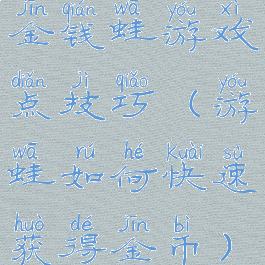 jīn qián wā yóu xì
金钱蛙游戏
diǎn jì qiǎo yóu
点技巧（游
wā rú hé kuài sù
蛙如何快速
huò dé jīn bì
获得金币）